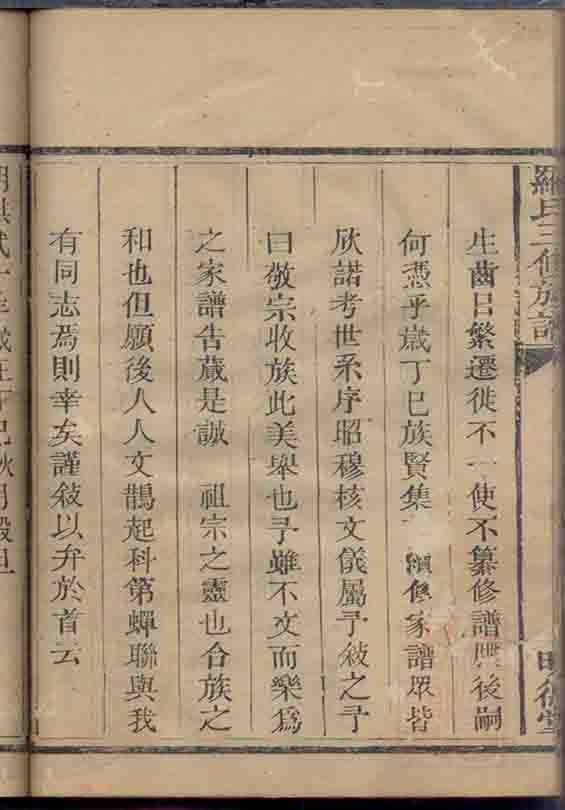 羅氏三修族譜
生齒日繁遷徙不一使不纂修譜牒後嗣
何憑乎歲丁巳族賢集 纘修家譜眾皆
欣諾考世系序昭穆核文儀屬予敘之予
曰敬宗收族此美舉也予雖不文而樂為
之家譜告蕆是誠 祖宗之靈也合族之
和也但願後人人文鵲起科第蟬聯與我
有同志焉則幸矣謹敘以弁於首云